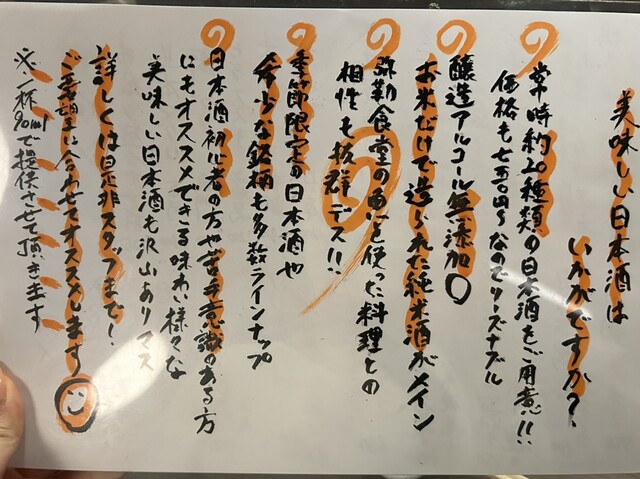 美味しい日本酒は
いかがですか?
常時約20種類の日本酒をご用意!!
価格も七五〇円〜なのでリーズナブル
醸造アルコール無添加○
お米だけで造られた純米酒がメイン
弥勒食堂の魚を使った料理との
相性も抜群デス!!
季節限定の日本酒や
希少な銘柄も多数ラインナップ
日本酒初心者の方や苦手意識のある方
にもオススメできる味わい様々な
美味しい日本酒も沢山ありマス
詳しくは是非スタッフまで!
ご希望に合わせてオススメします
※一杯90mlで提供させて頂きます